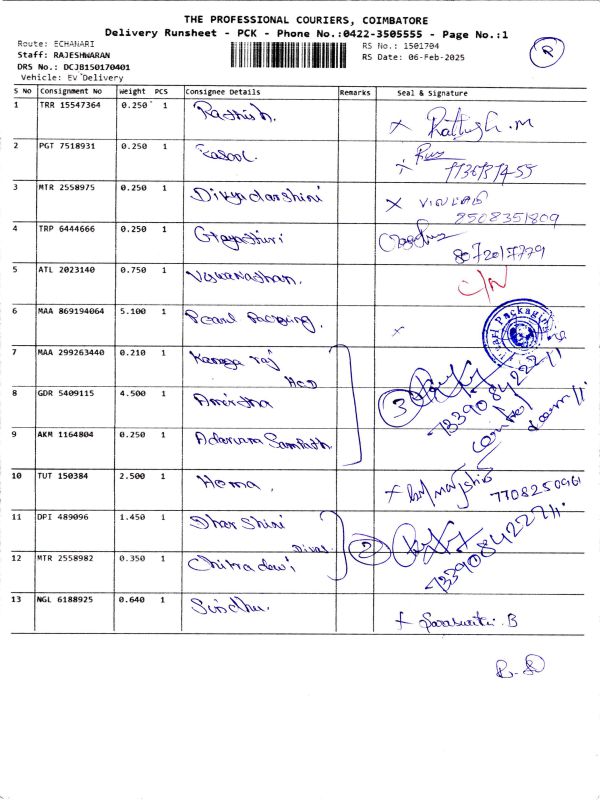 THE PROFESSIONAL COURIERS, COIMBATORE
Delivery Runsheet - PCK - Phone No.:0422-3505555 - Page No.:1
Route: ECHANARI
Staff: RAJESHWARAN
DRS No.: DCJB150170401
Vehicle: EV Delivery
RS No.: 1501704
RS Date: 06-Feb-2025
R
S No Consignment No Weight PCS Consignee Details Remarks Seal & Signature
1 TRR 15547364 0.250 1 Rathish. x Rathish.M
2 PGT 7518931 0.250 1 Rasool.
3 MTR 2558975 0.250 1 Divyadarshini x
2508351809
4 TRP 6444666 0.250 1 Gayathiri
8072017779
5 ATL 2023140 0.750 1 Viswanathan. C/N
6 MAA 869194064 5.100 1 Pearl Packing. x
Pearl Packaging
7 MAA 299263440 0.210 1 Kanaga raj
8 GDR 5409115 4.500 1 Amirtha 3 7339084227
9 AKM 1164804 0.250 1 Adanam Sampath control room
10 TUT 150384 2.500 1 Homa. 7708250961
11 DPI 489096 1.450 1 Dharshini
12 MTR 2558982 0.350 1 Chitradevi 2 7339084227
13 NGL 6188925 0.640 1 Sindhu. x Saraswathi.B